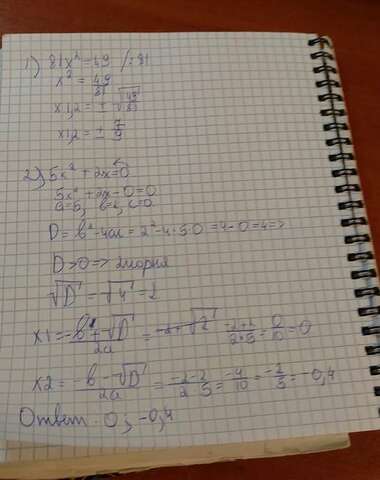 1) 81x² = 49 /:81
x² = 49/81
x1,2 = ± √49/81
x1,2 = ± 7/9
2) 5x² + 2x = 0
5x² + 2x - 0 = 0
a=5, b=2, c=0
D = b² - 4ac = 2² - 4·5·0 = 4 - 0 = 4 =>
D > 0 => 2корня
√D = √4 = 2
x1 = -b + √D / 2a = -2 + √2 -2+2 / 2*5 = 0/10 = 0
x2 = -b - √D / 2a = -2-2 / 2 5 = -4/10 = -2/5 = -0,4
Ответ: 0; -0,4